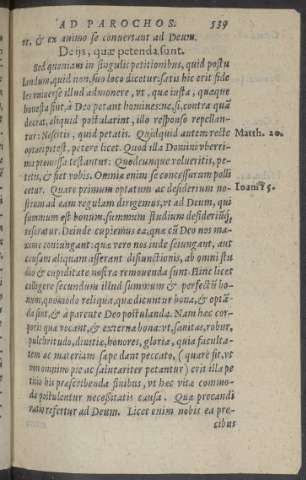 AD PAROCHOS. 539
re, & ex animo se conuertant ad Deum.
De ijs, quæ petenda sunt.
Sed quoniam in singulis petitionibus, quid postu
landum, quid non, suo loco dicetur: satis hic erit fide
les vniuerse illud admonere, vt, quæ iusta, quæque
honesta sint, à Deo petant homines: ne, si, contra quàm
decet, aliquid postularint, illo responso repellan-
tur: Nescitis, quid petatis. Quidquid autem recte Matth. 20.
optari potest, petere licet. Quod illa Domini vberri-
ma promissa testantur: Quodcunque volueritis, pe-
tetis, & fiet vobis. Omnia enim se concessurum polli
cetur. Quare primum optatum ac desiderium no- Ioann. 5.
strum ad eam regulam dirigemus, vt ad Deum, qui
summum est bonum, summum studium desideriũq́;
referatur. Deinde cupiemus ea, quæ cũ Deo nos ma-
xime coniungant: quæ vero nos inde seiungant, aut
causam aliquam afferant disiunctionis, ab omni stu
dio & cupiditate nostra remouenda sunt. Hinc licet
colligere secundum illud summum & perfectũ bo-
num, quomodo reliqua, quæ dicuntur bona, & optã-
da sint, & à parente Deo postulanda. Nam hæc cor-
poris quæ vocant, & externa bona: vt, sanitas, robur,
pulchritudo, diuitiæ, honores, gloria, quia faculta-
tem ac materiam sæpe dant peccato, (quare fit, vt
non omnino pie ac salutariter petantur) erit illa pe
titio his præscribenda finibus, vt hæc vitæ commo-
da postulentur necessitatis causa. Quæ precandi
ratio refertur ad Deum. Licet enim nobis ea pre-
cibus